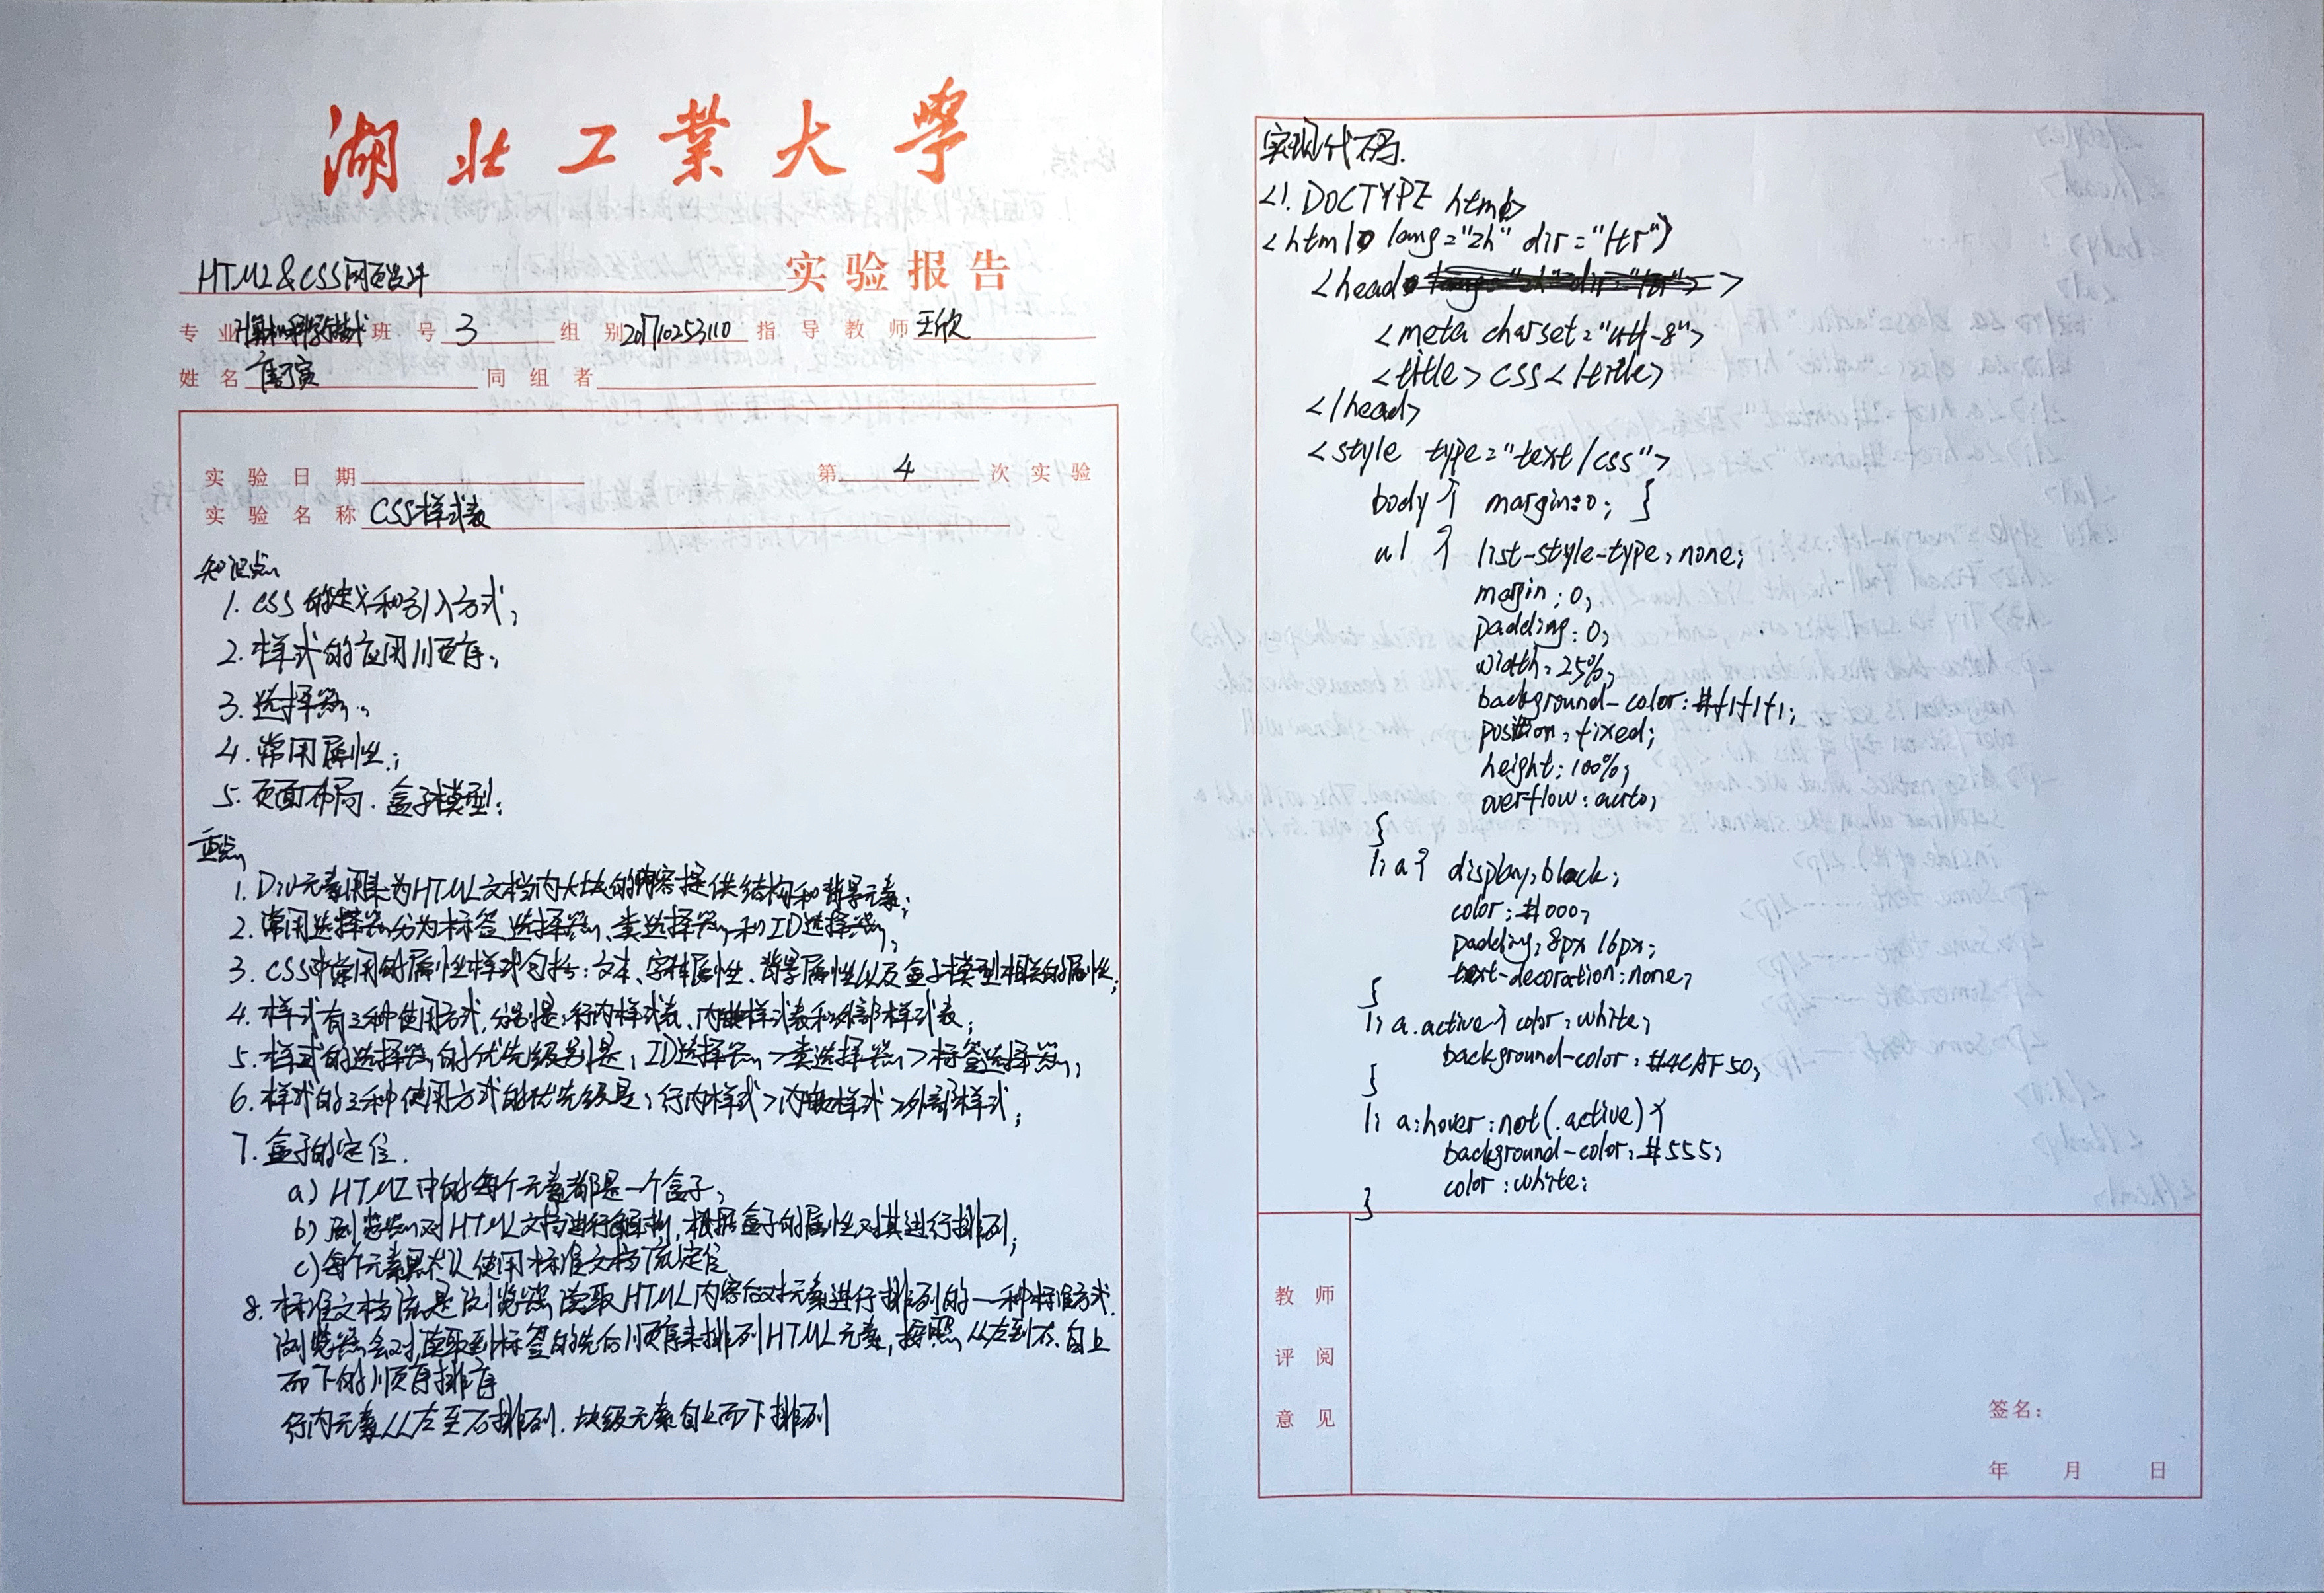 湖北工業大學
HTML&CSS网页设计 实验报告
专业 计算机科学与技术 班号 3 组别 201710253110 指导教师 王欣
姓名 同组者
实验日期 第 4 次实验
实验名称 CSS样式表
知识点
1. CSS的定义和引入方式;
2. 样式的应用顺序;
3. 选择器;
4. 常用属性;
5. 页面布局.盒子模型;
重点
1. Div元素用来为HTML文档内大块的内容提供结构和背景元素;
2. 常用选择器分为标签选择器、类选择器和ID选择器;
3. CSS中常用的属性样式包括:文本、字体属性、背景属性以及盒子模型相关的属性;
4. 样式有三种使用方式,分别是:行内样式表、内嵌样式表和外部样式表;
5. 样式的选择器的优先级别是:ID选择器>类选择器>标签选择器;
6. 样式的三种使用方式的优先级是:行内样式>内嵌样式>外部样式;
7. 盒子的定位.
a) HTML中的每个元素都是一个盒子;
b) 浏览器对HTML文档进行解析,根据盒子的属性对其进行排列;
c) 每个元素默认使用标准文档流定位
8. 标准文档流是浏览器读取HTML内容后对元素进行排列的一种标准方式.
浏览器会对读取到标签的先后顺序来排列HTML元素,按照从左到右.自上
而下的顺序排序
行内元素从左至右排列.块级元素自上而下排列
实现代码.
<!DOCTYPE html>
<html lang="zh" dir="ltr">
<head>
<meta charset="utf-8">
<title>CSS</title>
</head>
<style type="text/css">
body { margin:0; }
ul { list-style-type:none;
margin:0;
padding:0;
width:25%;
background-color:#f1f1f1;
position:fixed;
height:100%;
overflow:auto;
}
li a { display:block;
color:#000;
padding:8px 16px;
text-decoration:none;
}
li a.active { color:white;
background-color:#4CAF50;
}
li a:hover:not(.active) {
background-color:#555;
color:white;
}
教师
评阅
意见
签名:
年 月 日